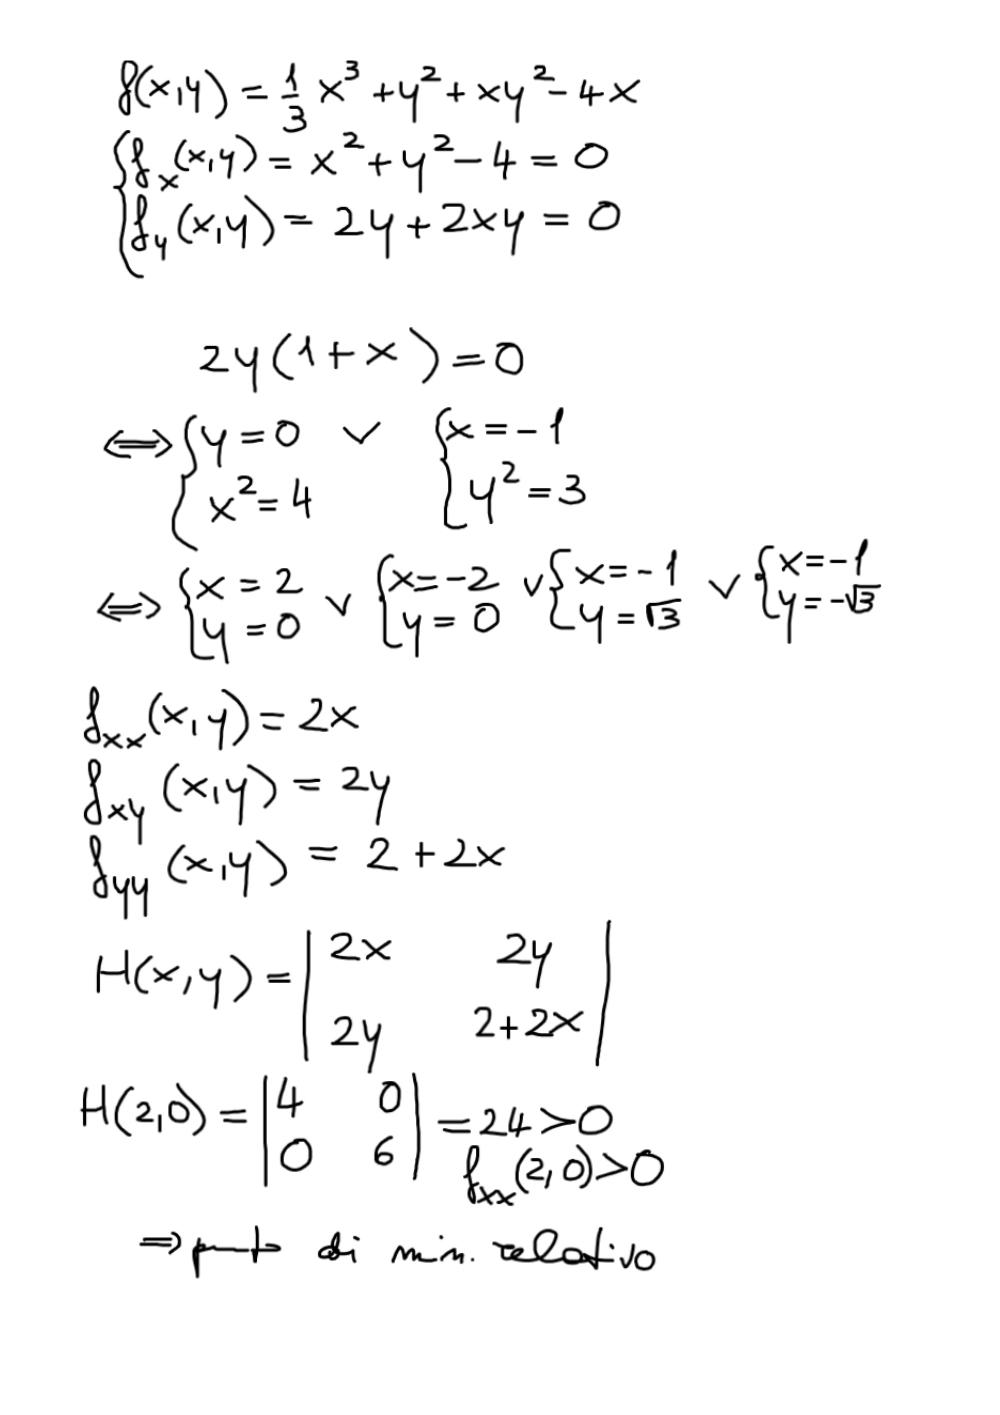 f(x,y) = 1/3 x³ + y² + xy² - 4x
{ f_x(x,y) = x² + y² - 4 = 0
f_y(x,y) = 2y + 2xy = 0
2y(1+x) = 0
⇔ { y = 0 ∨ { x = -1
x² = 4 y² = 3
⇔ { x = 2 ∨ { x = -2 ∨ { x = -1 ∨ { x = -1
y = 0 y = 0 y = √3 y = -√3
f_xx(x,y) = 2x
f_xy(x,y) = 2y
f_yy(x,y) = 2 + 2x
H(x,y) = | 2x 2y |
| 2y 2+2x |
H(2,0) = | 4 0 | = 24 > 0
| 0 6 | f_xx(2,0) > 0
⇒ punto di min. relativo